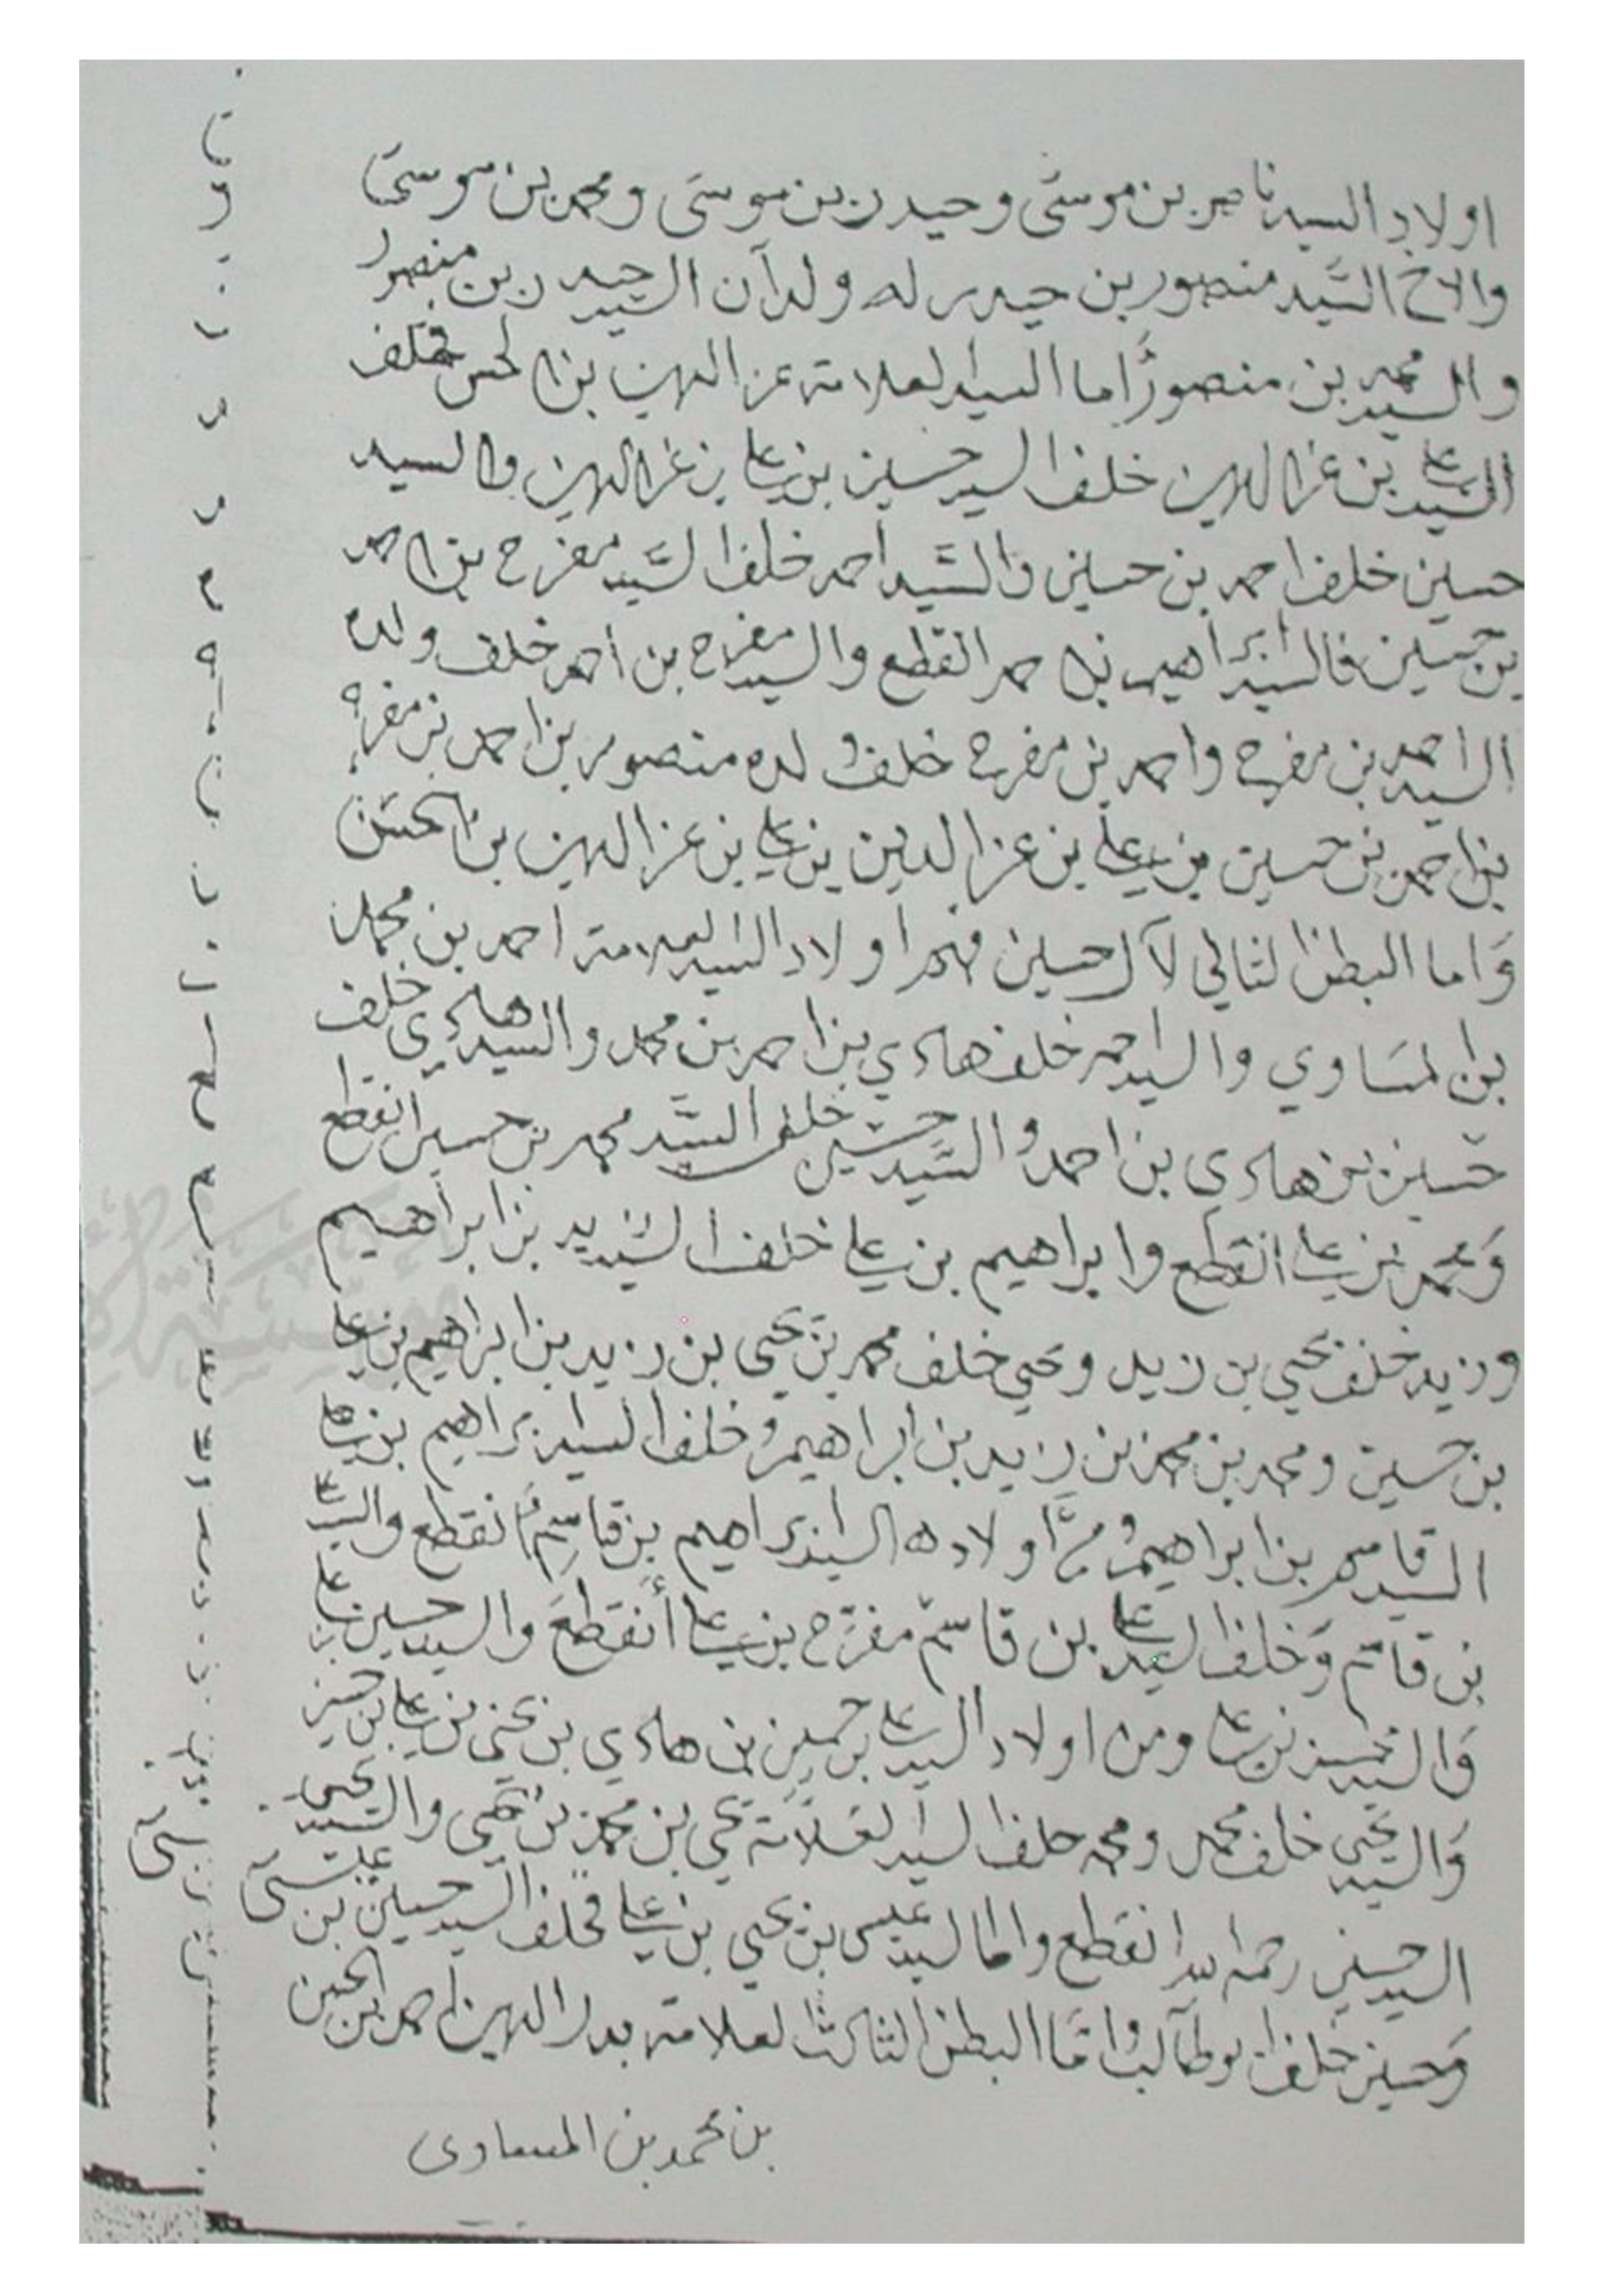 اولاد السيد ناصر بن موسى وحيدر بن موسى ومحمد بن موسى
والاخ السيد منصور بن حيدر له ولدآن السيد حيدر بن منصور
والسيد محمد بن منصور اما السيد العلامة عز الدين بن الحسن فخلف
السيد علي بن عز الدين خلف السيد حسين بن علي بن عز الدين والسيد
حسين خلف احمد بن حسين والسيد احمد خلف السيد مفرح بن احمد
بن حسين فالسيد ابراهيم بن احمد انقطع والسيد مفرح بن احمد خلف ولده
السيد احمد بن مفرح واحمد بن مفرح خلف ولده منصور بن احمد بن مفرح
بن احمد بن حسين بن علي بن عز الدين بن علي بن عز الدين بن الحسن
وَاما البطن الثاني لآل حسين فهم اولاد السيد العلامة احمد بن محمد
بن المساوي والسيد احمد خلف هادي بن احمد بن محمد والسيد هادي خلف
حسين بن هادي بن احمد والسيد حسين خلف السيد محمد بن حسين انقطع
وَمحمد بن علي انقطع وابراهيم بن علي خلف السيد زيد بن ابراهيم
وزيد خلف يحيى بن زيد ويحيى خلف محمد بن يحيى بن زيد بن ابراهيم بن علي
بن حسين ومحمد بن محمد بن زيد بن ابراهيم وخلف السيد ابراهيم بن علي
السيد قاسم بن ابراهيم اولاده السيد ابراهيم بن قاسم انقطع والسيد علي
بن قاسم وَخلف السيد علي بن قاسم مفرح بن علي أنقطع وَالسيد حسين بن علي
وَالسيد بن علي ومن اولاد السيد علي بن حسين بن هادي بن يحيى بن علي بن حسين
وَالسيد يحيى خلف محمد ومحمد خلف السيد العلامة يحيى بن محمد بن يحيى والسيد يحيى
السيد حسين رحمه الله انقطع واما السيد عيسى بن يحيى بن علي فخلف السيد حسين بن عيسى
وَحسين خلف ابو طالب وامَّا البطن الثالث العلامة بدر الدين احمد بن الحسن
بن محمد بن المساوى